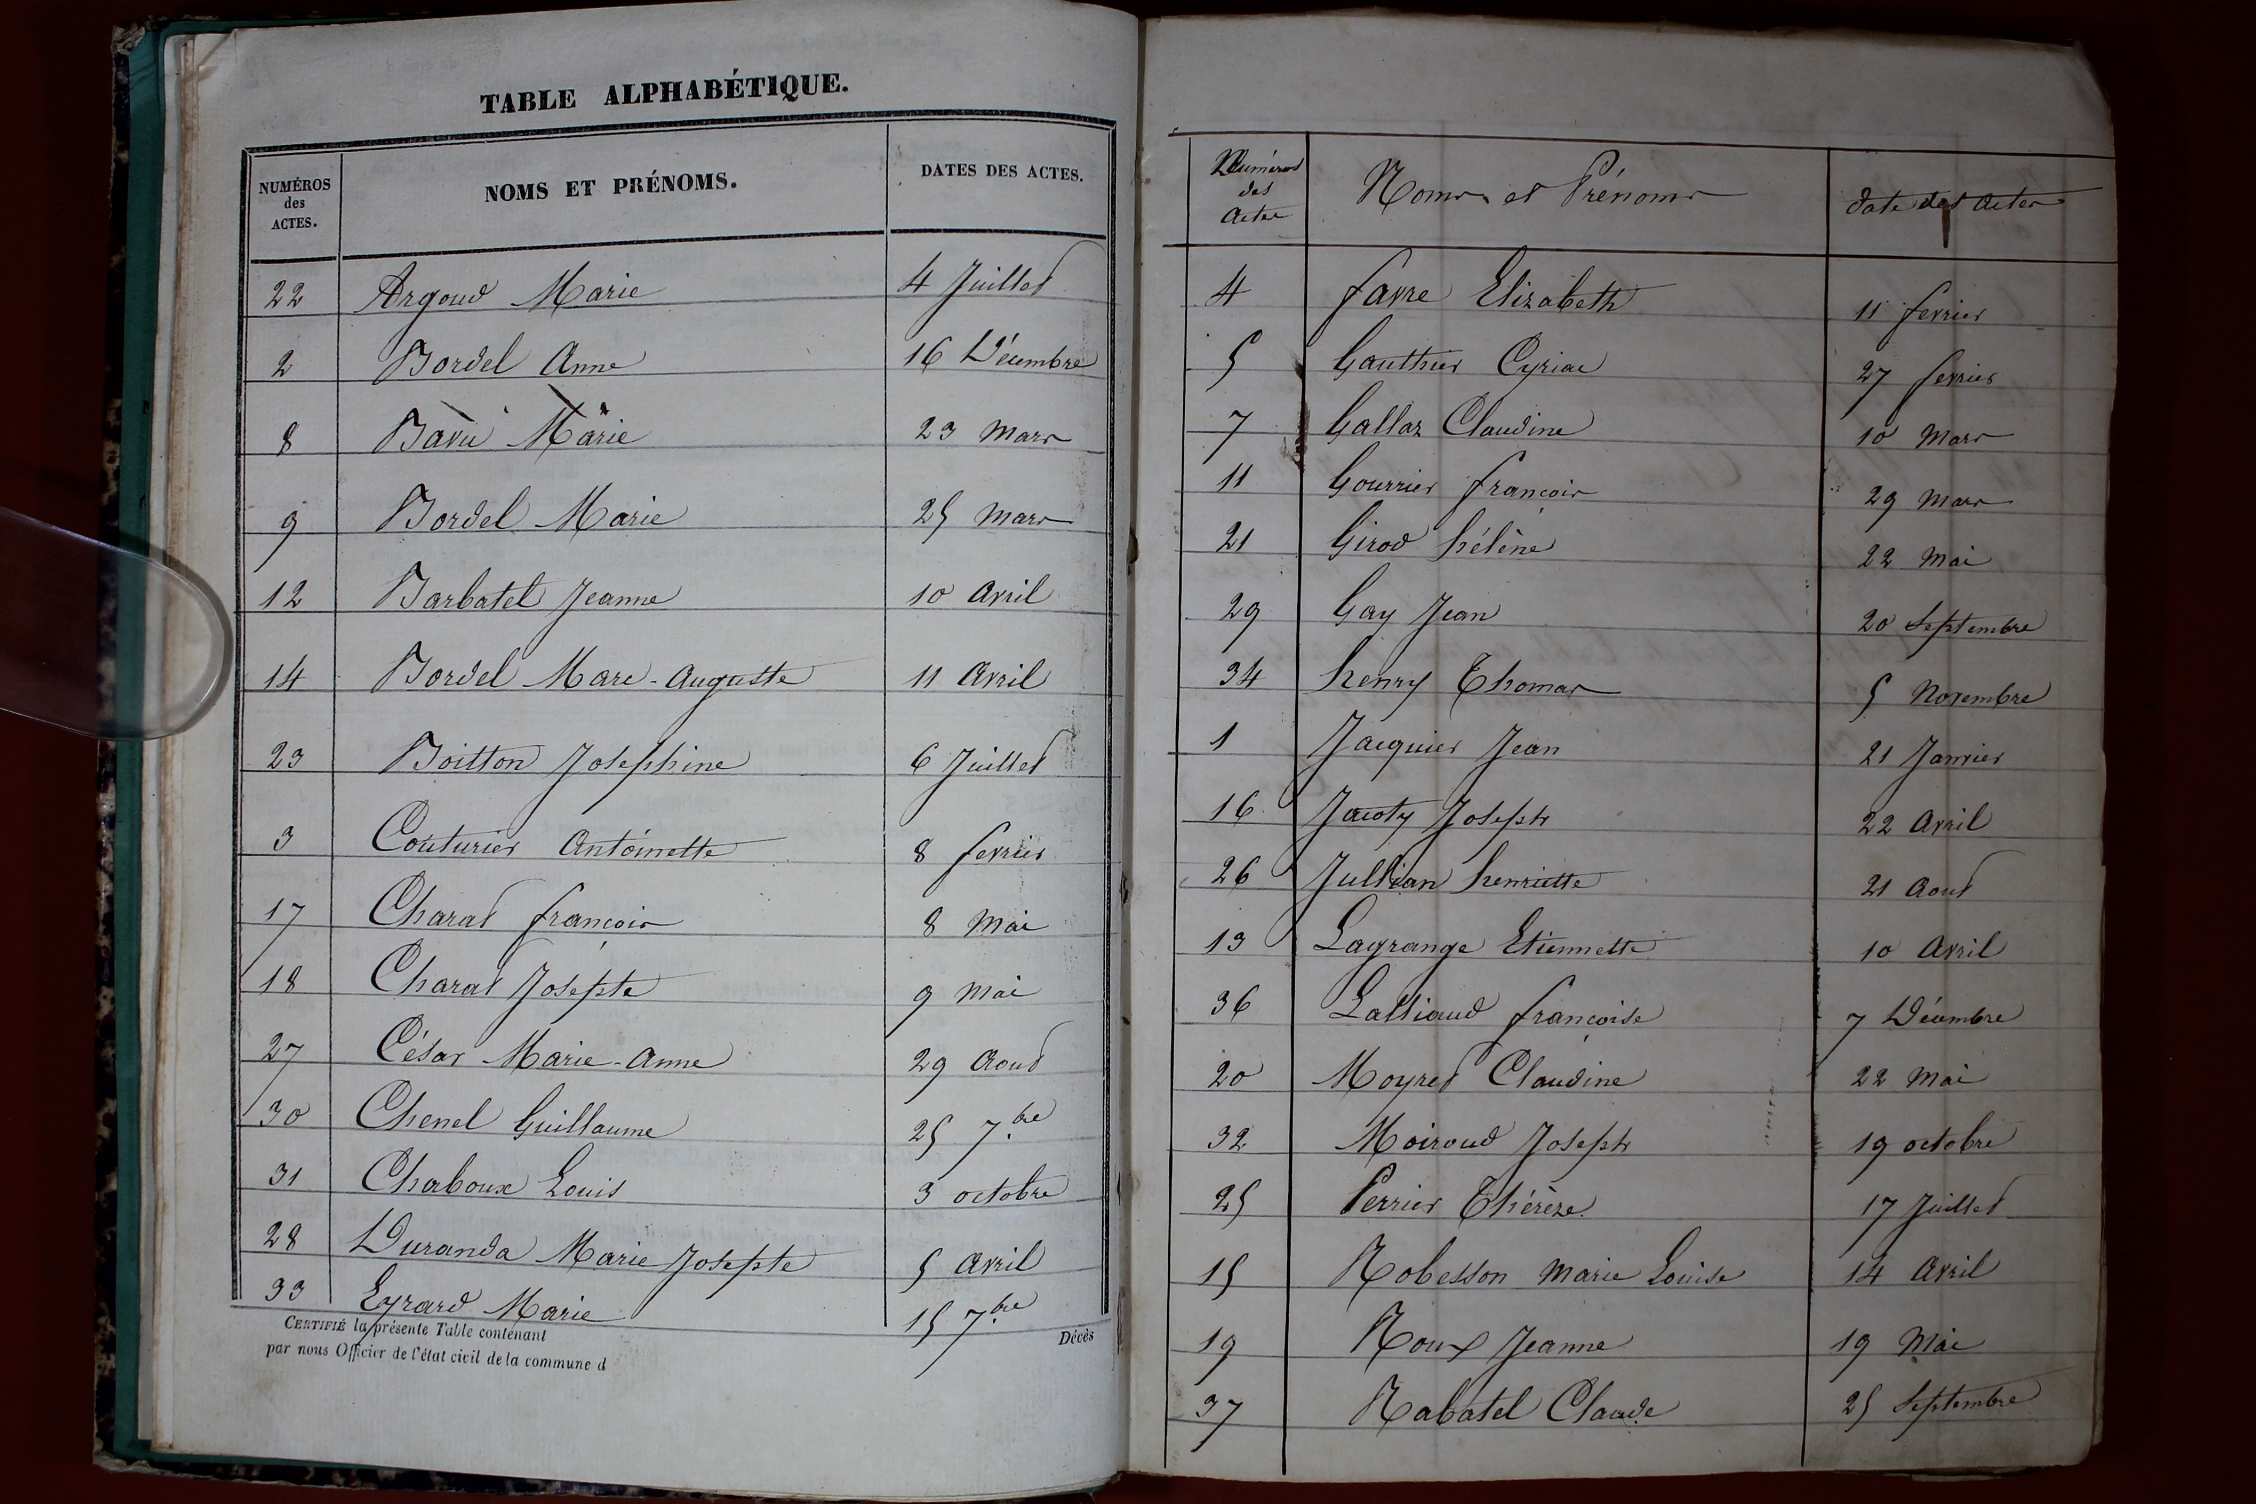 TABLE ALPHABÉTIQUE.
NUMÉROS des ACTES. NOMS ET PRÉNOMS. DATES DES ACTES.
22 Argoud Marie 4 Juillet
2 Bordel Anne 16 Décembre
8 Bavu Marie 23 Mars
9 Bordel Marie 25 Mars
12 Barbatel Jeanne 10 Avril
14 Bordel Marc-Auguste 11 Avril
23 Boitton Josephine 6 Juillet
3 Couturier Antoinette 8 fevrier
17 Charat françois 8 Mai
18 Charat Josepte 9 Mai
27 César Marie-Anne 29 Aout
30 Chenel Guillaume 25 7.bre
31 Chaboux Louis 3 octobre
28 Duranda Marie Josepte 5 Avril
33 Eyrard Marie 15 7.bre
CERTIFIÉ la présente Table contenant Décès
par nous Officier de l'état civil de la commune d
Numéros des Actes Noms et Prénoms date des Actes
4 favre Elizabeth 11 fevrier
5 Gauthier Cyriac 27 fevrier
7 Gallaz Claudine 10 Mars
11 Gourrier françois 29 Mars
21 Girod hélène 22 Mai
29 Gay Jean 20 Septembre
34 henry Thomas 5 Novembre
1 Jacquier Jean 21 Janvier
16 Jacoty Joseph 22 Avril
26 Jullian henriette 21 Aout
13 Lagrange Etiennette 10 Avril
36 Lalliaud françoise 7 Décembre
20 Moyret Claudine 22 Mai
32 Moiroud Joseph 19 octobre
25 Perrier Thérèze. 17 Juillet
15 Robesson Marie Louise 14 Avril
19 Roux Jeanne 19 Mai
37 Rabatel Claude 25 Septembre